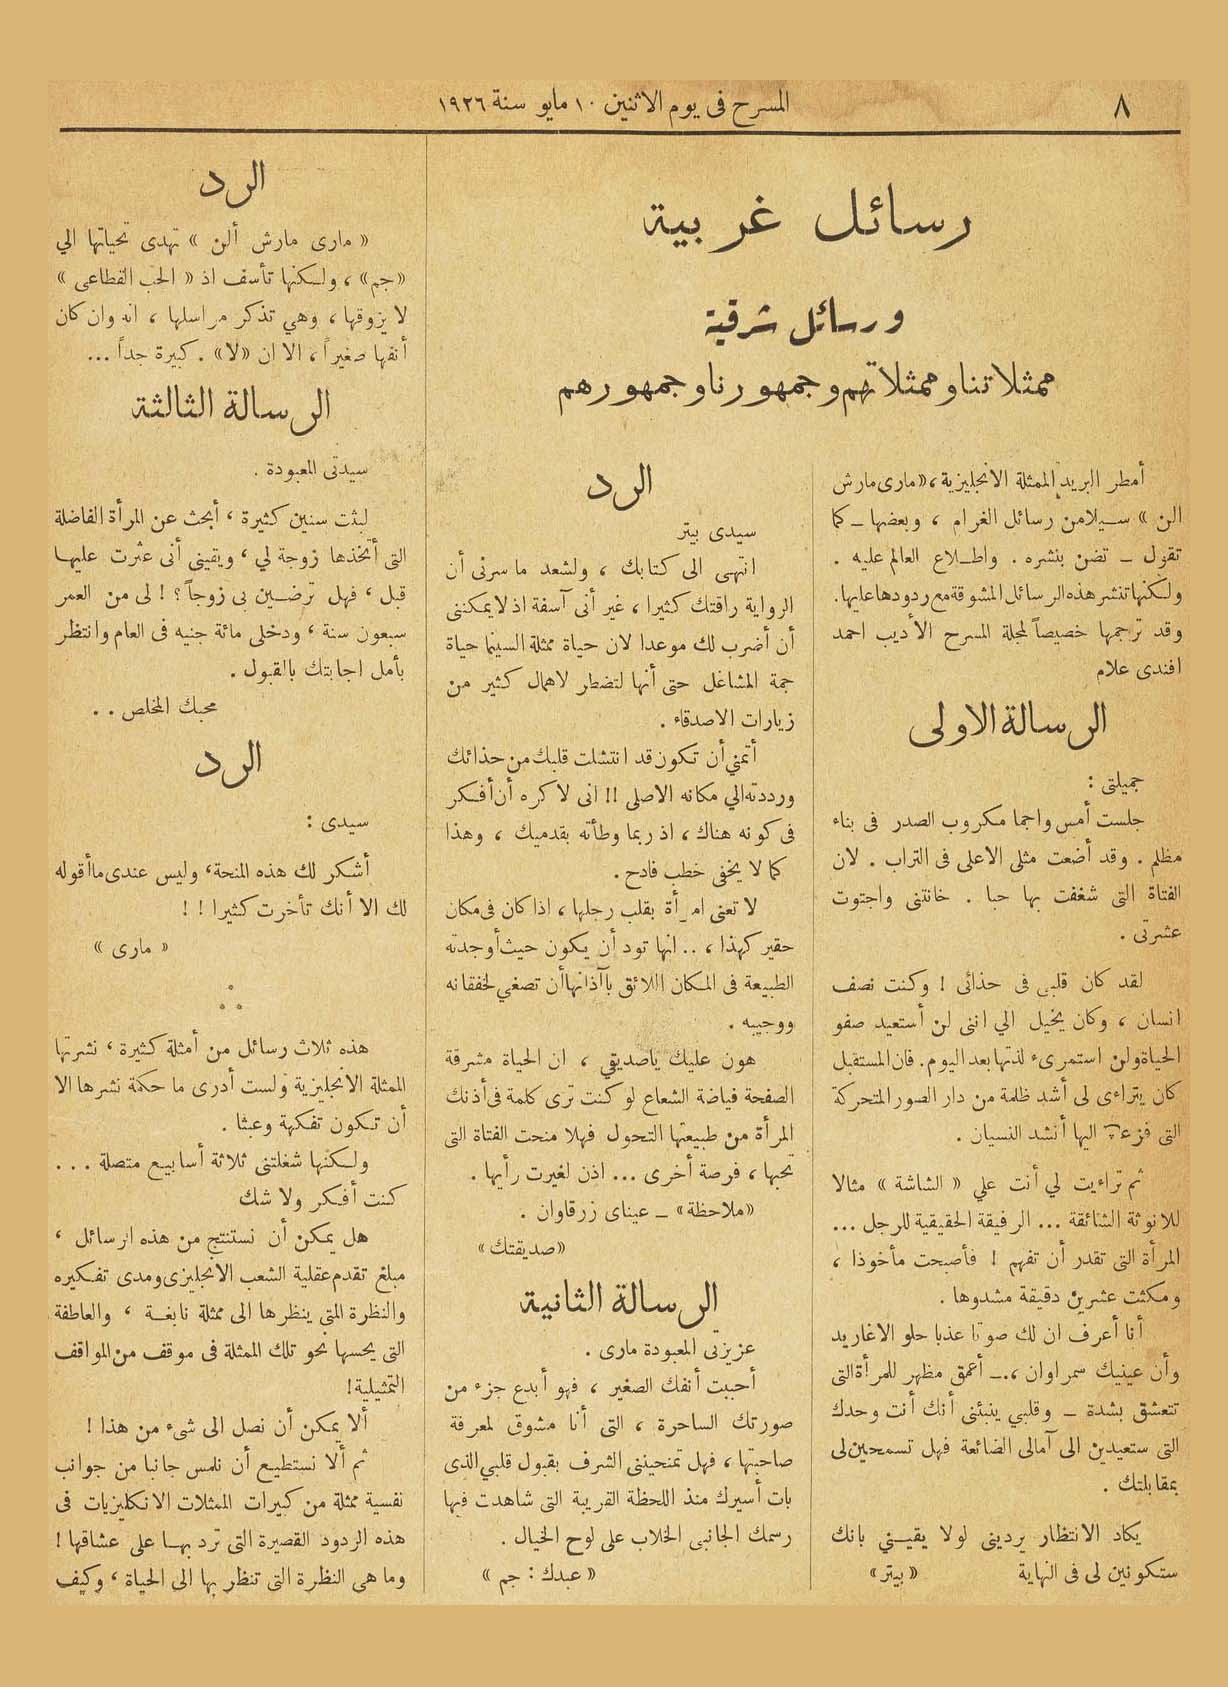 ٨
المسرح فى يوم الاثنين ١٠ مايو سنة ١٩٢٦
رسائل غربية
ورسائل شرقية
ممثلاتنا وممثلاتهم وجمهورنا وجمهورهم
أمطر البريد الممثلة الانجليزية، «مارى مارش
الن» سيلا من رسائل الغرام ، وبعضها ـ كما
تقول ـ تضن بنشره . واطلاع العالم عليه .
ولكنها تنشر هذه الرسائل المشوقة مع ردودها عليها.
وقد ترجمها خصيصاً لمجلة المسرح الأديب احمد
افندى علام
الرسالة الاولى
جميلتى :
جلست أمس واجما مكروب الصدر فى بناء
مظلم . وقد أضعت مثلى الاعلى فى التراب . لان
الفتاة التى شغفت بها حبا . خانتنى واجتوت
عشرتى .
لقد كان قلبى فى حذائى ! وكنت نصف
انسان ، وكان يخيل الي اننى لن أستعيد صفو
الحياة ولن استمرىء لذتها بعد اليوم. فان المستقبل
كان يتراءى لى أشد ظلمة من دار الصور المتحركة
التى فزعت اليها أنشد النسيان .
ثم تراءيت لي أنت علي « الشاشة » مثالا
للانوثة الشائقة ... الرفيقة الحقيقية للرجل ...
المرأة التى تقدر أن تفهم ! فأصبحت مأخوذا ،
ومكثت عشرين دقيقة مشدوها .
أنا أعرف ان لك صوتا عذبا حلو الاغاريد
وأن عينيك سمراوان ،ـ أعمق مظهر للمرأة التى
تتعشق بشدة ـ وقلبي ينبئنى أنك أنت وحدك
التى ستعيدين الى آمالى الضائعة فهل تسمحين لى
بمقابلتك .
يكاد الانتظار يردينى لولا يقينى بانك
ستكونين لى فى النهاية «بيتر»
الرد
سيدى بيتر
انتهى الى كتابك ، ولشعد ما سرنى أن
الرواية راقتك كثيرا ، غير أنى آسفة اذ لا يمكننى
أن أضرب لك موعدا لان حياة ممثلة السينما حياة
جمة المشاغل حتى أنها لتضطر لاهمال كثير من
زيارات الاصدقاء .
أتمني أن تكون قد انتشلت قلبك من حذائك
ورددته الي مكانه الاصلى !! انى لا كره أن أفكر
فى كونه هناك ، اذ ربما وطأته بقدميك ، وهذا
كما لا يخفى خطب فادح .
لا تعنى امرأة بقلب رجلها ، اذا كان فى مكان
حقير كهذا ، .. انها تود أن يكون حيث أوجدته
الطبيعة فى المكان اللائق بآذانها أن تصغي لخفقانه
ووجيبه .
هون عليك ياصديقي ، ان الحياة مشرقة
الصفحة فياضة الشعاع لو كنت ترى كلمة فى أذنك
المرأة من طبيعتها التحول فهلا منحت الفتاة التى
تحبها ، فرصة أخرى ... اذن لغيرت رأيها .
«ملاحظة» ـ عيناى زرقاوان .
«صديقتك»
الرسالة الثانية
عزيزتى المعبودة مارى .
أحببت أنفك الصغير ، فهو أبدع جزء من
صورتك الساحرة ، التى أنا مشوق لمعرفة
صاحبتها ، فهل تمنحيننى الشرف بقبول قلبي الذى
بات أسيرك منذ اللحظة القريبة التى شاهدت فيها
رسمك الجانبى الخلاب على لوح الخيال .
« عبدك : جم »
الرد
« مارى مارش ألن » تهدى تحياتها الي
«جم» ، ولكنها تأسف اذ « الحب القطاعى »
لا يزوقها ، وهي تذكر مراسلها ، انه وان كان
أنفها صغيراً ، الا ان «لا» . كبيرة جداً ...
الرسالة الثالثة
سيدتى المعبودة .
لبثت سنين كثيرة ، أبحث عن المرأة الفاضلة
التى أتخذها زوجة لي ، ويقينى أنى عثرت عليها
قبل ، فهل ترضين بى زوجاً ؟ ! لى من العمر
سبعون سنة ، ودخلى مائة جنيه فى العام وانتظر
بأمل اجابتك بالقبول .
محبك المخلص . .
الرد
سيدى :
أشكر لك هذه المنحة، وليس عندى ما أقوله
لك الا أنك تأخرت كثيرا ! !
« مارى »
هذه ثلاث رسائل من أمثلة كثيرة ، نشرتها
الممثلة الانجليزية ولست أدرى ما حكمة نشرها الا
أن تكون تفكهة وعبثا .
ولكنها شغلتنى ثلاثة أسابيع متصلة ...
كنت أفكر ولا شك
هل يمكن أن نستنتج من هذه الرسائل ،
مبلغ تقدم عقلية الشعب الانجليزى ومدى تفكيره
والنظرة التى ينظرها الى ممثلة نابغة ، والعاطفة
التى يحسها نحو تلك الممثلة فى موقف من المواقف
التمثيلية!
ألا يمكن أن نصل الى شىء من هذا !
ثم ألا نستطيع أن نلمس جانبا من جوانب
نفسية ممثلة من كبيرات الممثلات الانكليزيات فى
هذه الردود القصيرة التى ترد بها على عشاقها !
وما هى النظرة التى تنظر بها الى الحياة ، وكيف